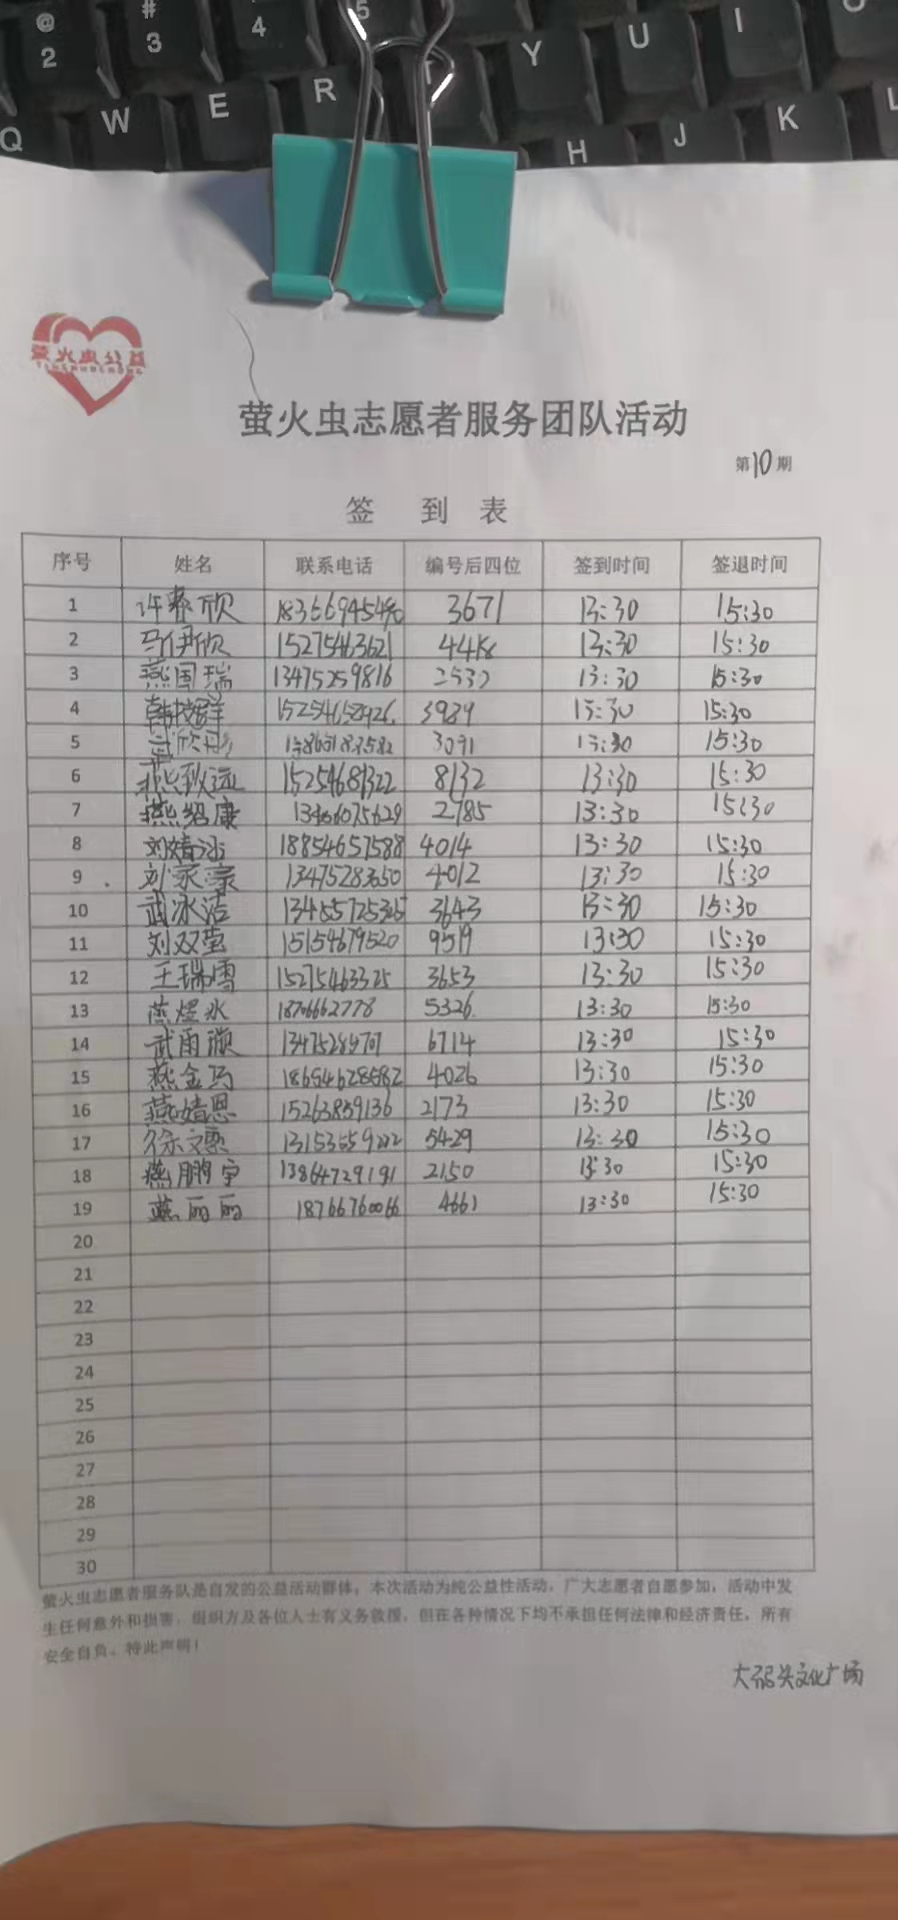 @
#
2
3
4
5
Q W E R T Y U I O
H J K L
萤火虫公益
萤火虫志愿者服务团队活动
第10期
签 到 表
序号 姓名 联系电话 编号后四位 签到时间 签退时间
1 3671 13:30 15:30
2 马伊欣 15275463621 13:30 15:30
3 燕国瑞 13475259816 2532 13:30 15:30
4 15254658926 3939 13:30 15:30
5 武欣彤 3091 13:30 15:30
6 燕致远 15254681322 8132 13:30 15:30
7 燕绍康 13406075629 2785 13:30 15:30
8 18854657588 4014 13:30 15:30
9 13475283650 4012 13:30 15:30
10 武冰洁 3643 13:30 15:30
11 刘双莹 15154679520 9519 13:30 15:30
12 王瑞雪 15275463325 3653 13:30 15:30
13 燕煜水 18706662778 5326 13:30 15:30
14 武雨灏 6714 13:30 15:30
15 18654628682 4026 13:30 15:30
16 燕婧恩 15263839136 2173 13:30 15:30
17 5429 13:30 15:30
18 燕鹏宇 13864729191 2150 13:30 15:30
19 燕丽丽 18766760066 4661 13:30 15:30
20
21
22
23
24
25
26
27
28
29
30
萤火虫志愿者服务队是自发的公益活动群体，本次活动为纯公益性活动，广大志愿者自愿参加，活动中发
生任何意外和损害，组织方及各位人士有义务救援，但在各种情况下均不承担任何法律和经济责任，所有
安全自负。特此声明！
大码头文化广场